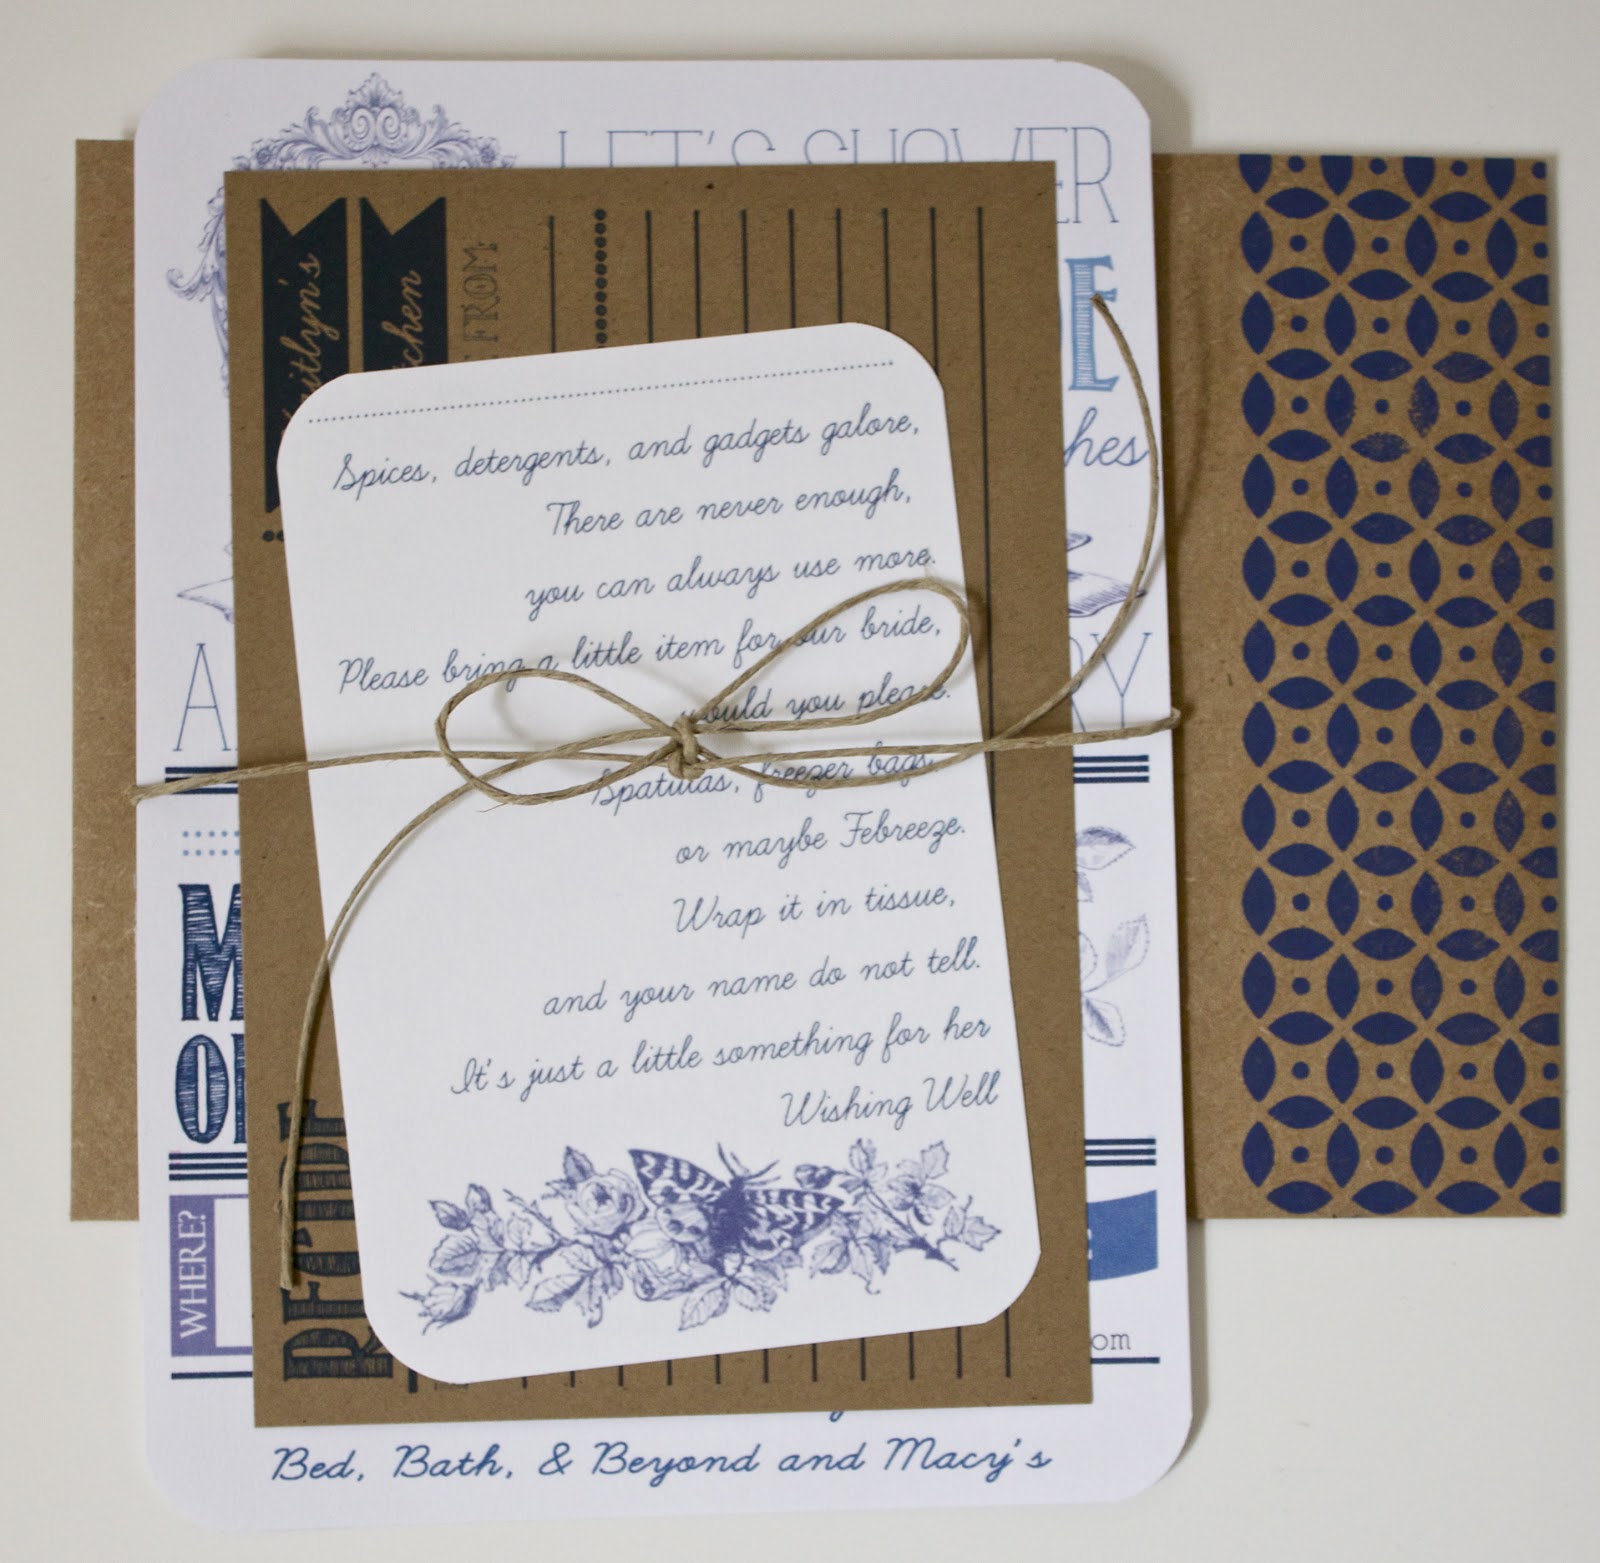 LET'S SHOWER
Kaitlyn's
FROM
Spices, detergents, and gadgets galore,
There are never enough,
you can always use more.
Please bring a little item for our bride,
would you please.
Spatulas, freezer bags,
or maybe Febreeze.
Wrap it in tissue,
and your name do not tell.
It's just a little something for her
Wishing Well
WHERE?
Bed, Bath, & Beyond and Macy's